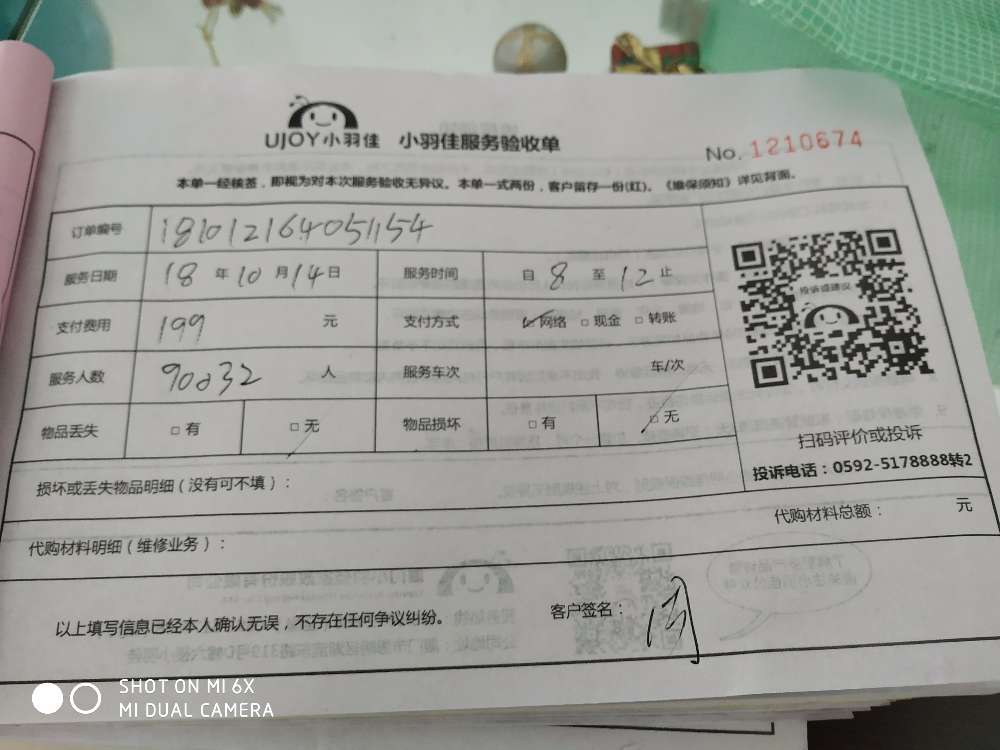 UJOY小羽佳 小羽佳服务验收单
No. 1210674
本单一经核签，即视为对本次服务验收无异议。本单一式两份，客户留存一份(红)。《维保须知》详见背面。
订单编号 181012164051154
服务日期 18 年 10 月 14 日 服务时间 自 8 至 12 止
支付费用 199 元 支付方式 网络 现金 转账
服务人数 90032 人 服务车次 车/次
物品丢失 有 无 物品损坏 有 无
投诉或建议
扫码评价或投诉
投诉电话：0592-5178888转2
损坏或丢失物品明细（没有可不填）：
代购材料明细（维修业务）： 代购材料总额： 元
以上填写信息已经本人确认无误，不存在任何争议纠纷。 客户签名：
SHOT ON MI 6X
MI DUAL CAMERA